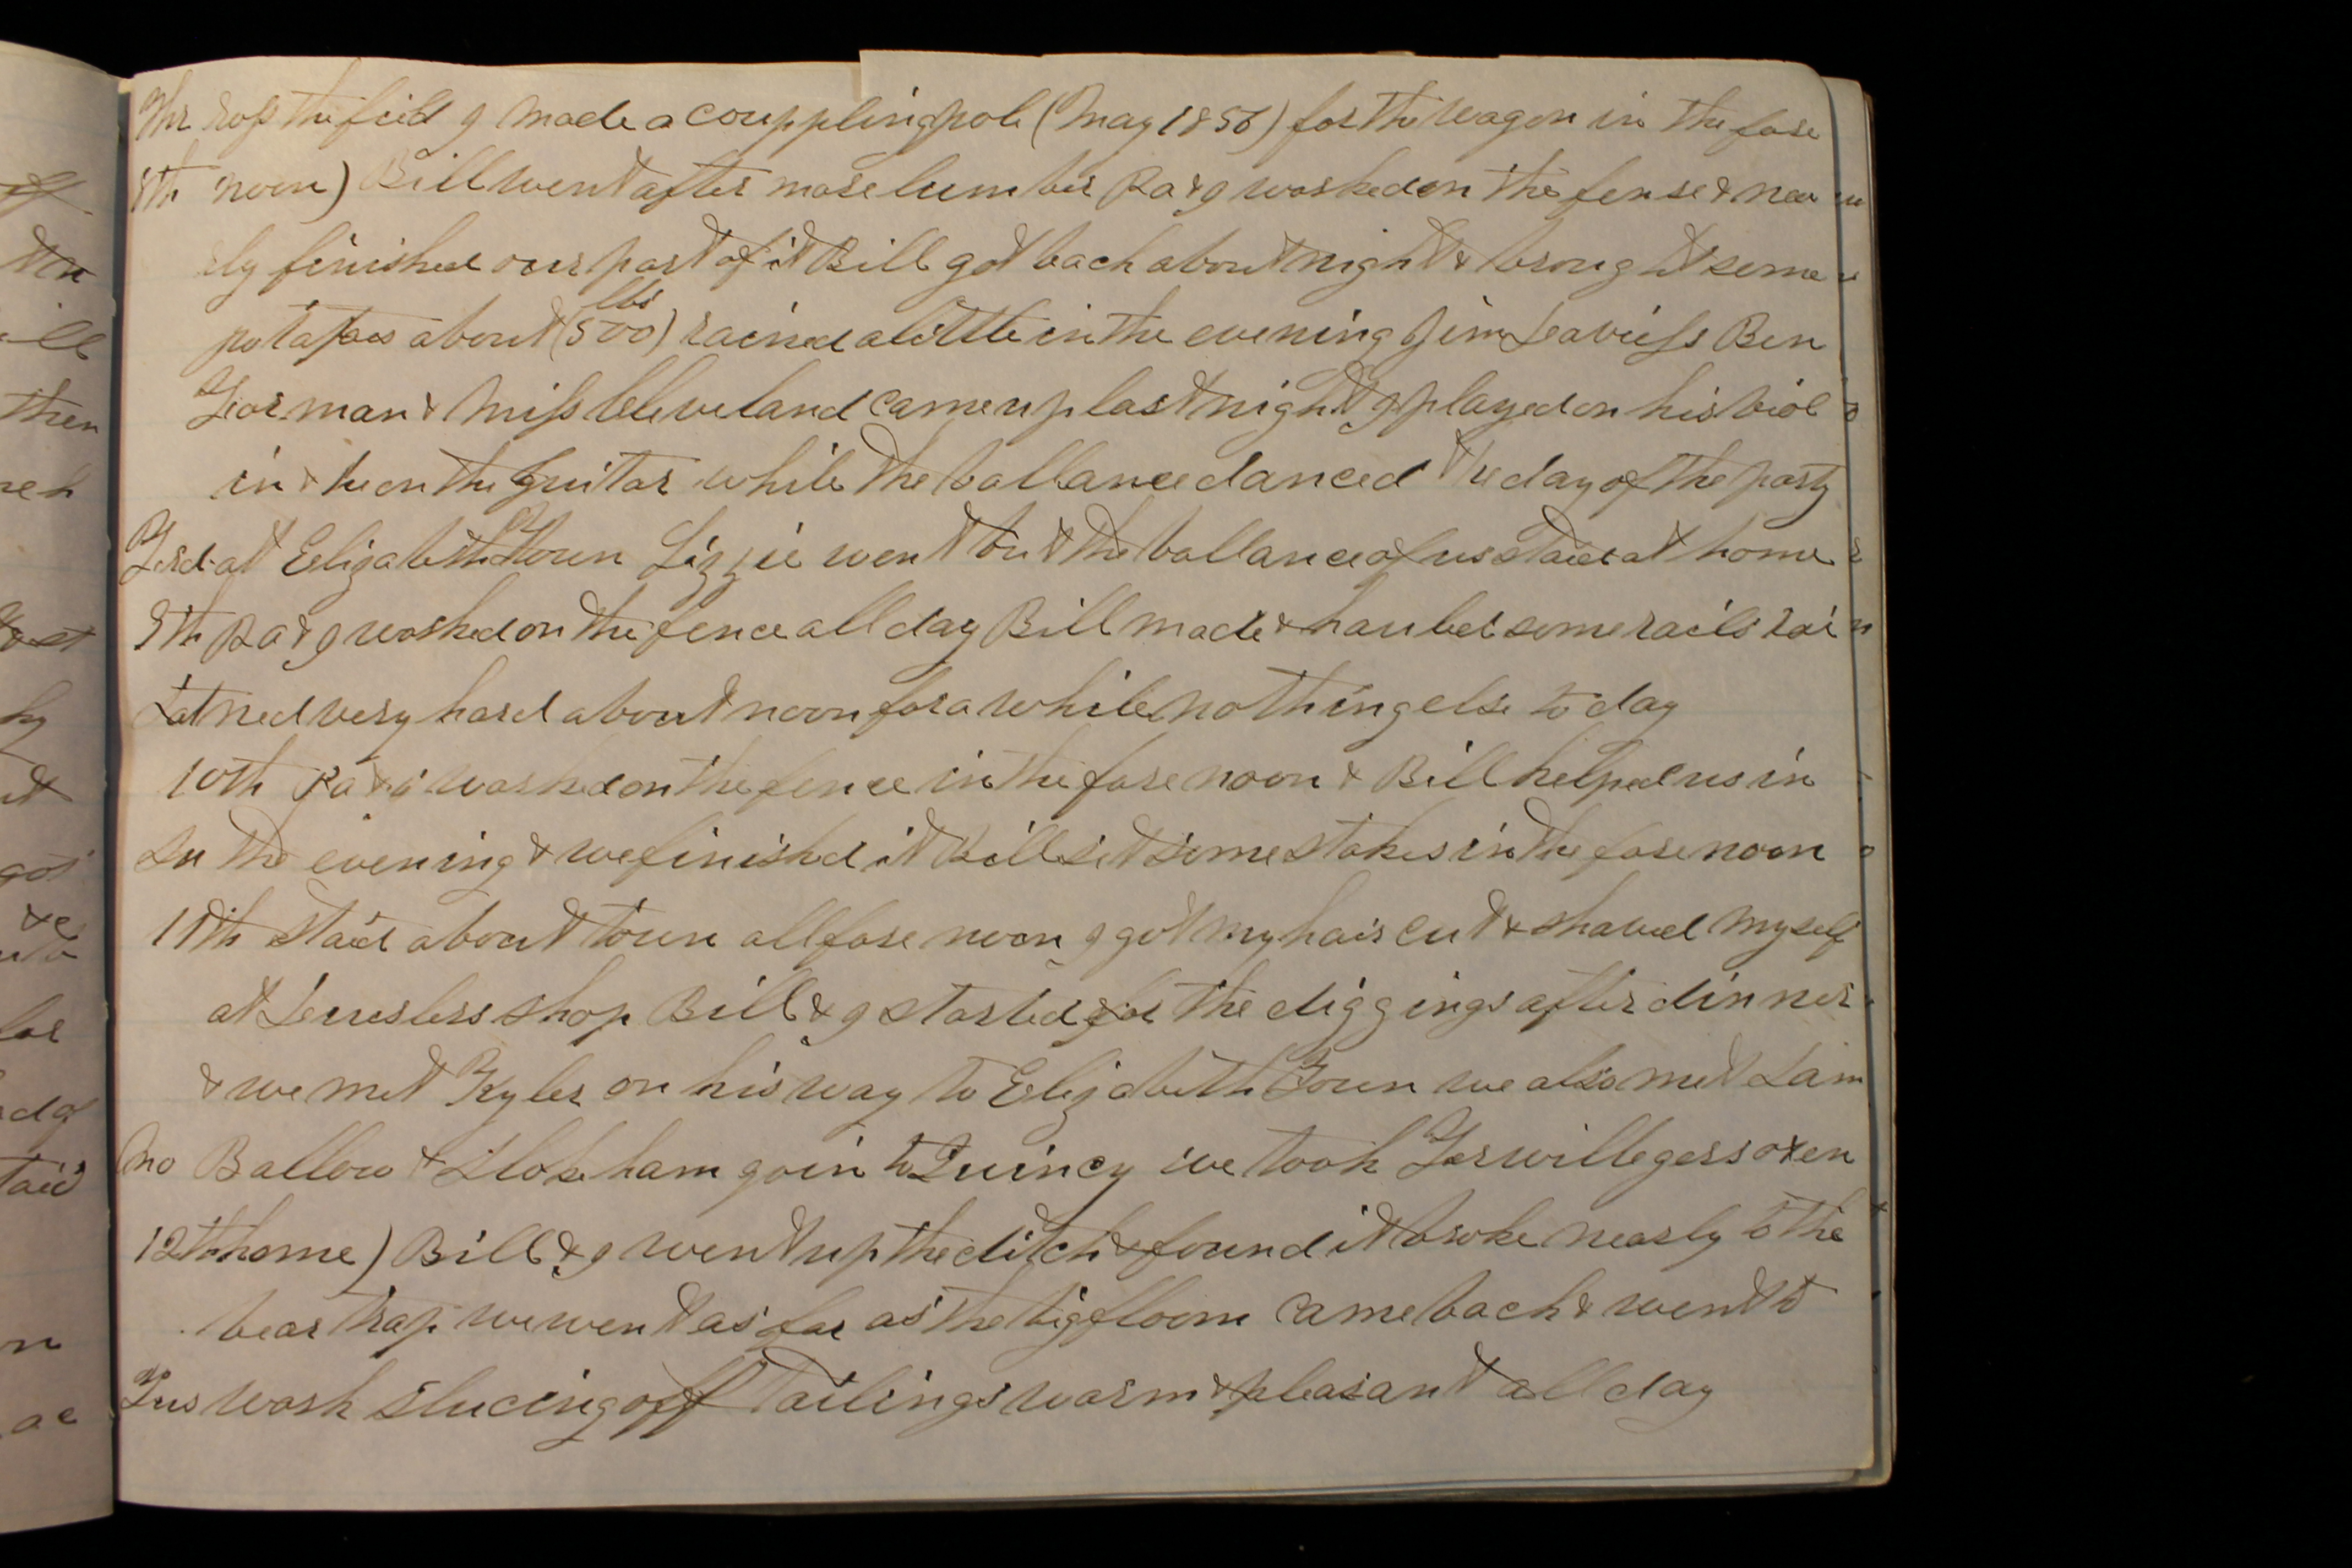 Thr ross the feild I made a couppling pole (May 1856) for the wagon in the fore
8th noon) Bill went after more lumber Pa & I worked on the fense & near
rly finished our part of it Bill got back about night & brought some
potatoes about (500 lbs) rained a little in the evening Jim Leavitts Ben
Gorman & Miss Cleveland came up last night I played on his viol
in & he on the guitar while the ballance danced the day of the party
Frd at Elizabeth Town Lizzie went but the ballance of us staid at home
9th Pa & I worked on the fence all day Bill made & hauled some rails rai
Sat ned very hard about noon for a while nothing else to day
10th Pa & I worked on the fence in the fore noon & Bill helped us in
Sn the evening & we finished it Bill set some stakes in the fore noon
11th staid about town all fore noon I got my hair cut & shaved myself
at shop Bill & I started for the diggings after dinner
& we met Kyler on his way to Elizabeth Town we also met Sam
Mo Ballow & goin to Quincy we took Terwillegers oxen
12th home) Bill & I went up the ditch & found it broke nearly to the
bear trap we went as far as the big floom came back & went to
Tus work slucing off tailings warm & pleasant all day